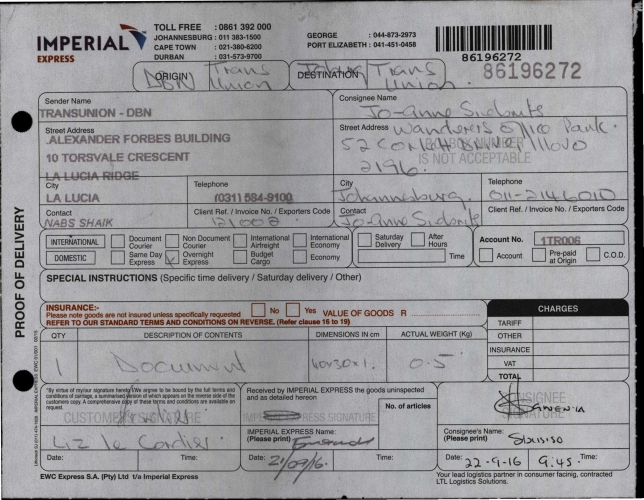 IMPERIAL
EXPRESS
TOLL FREE : 0861 392 000
JOHANNESBURG : 011 383-1500
CAPE TOWN : 021-380-6200
DURBAN : 031-573-9700
GEORGE : 044-873-2973
PORT ELIZABETH : 041-451-0458
86196272
86196272
ORIGIN
DBN Trans Union
DESTINATION
Joburg Trans Union
Sender Name
TRANSUNION - DBN
Street Address
ALEXANDER FORBES BUILDING
10 TORSVALE CRESCENT
LA LUCIA RIDGE
City
LA LUCIA
Telephone
(031) 584-9100
Contact
NABS SHAIK
Client Ref. / Invoice No. / Exporters Code
121002
Consignee Name
Jo-anne
Street Address Wanderers Office Park.
52 Illovo
IS NOT ACCEPTABLE
2196.
City
Johannesburg
Telephone
011-2146010
Contact
Jo-Anne
Client Ref. / Invoice No. / Exporters Code
INTERNATIONAL
DOMESTIC
Document Courier
Non Document Courier
International Airfreight
International Economy
Same Day Express
Overnight Express
Budget Cargo
Economy
Saturday Delivery
After Hours
Time
Account No. 1TR006
Account
Pre-paid at Origin
C.O.D.
SPECIAL INSTRUCTIONS (Specific time delivery / Saturday delivery / Other)
INSURANCE:-
Please note goods are not insured unless specifically requested
No
Yes
VALUE OF GOODS R
REFER TO OUR STANDARD TERMS AND CONDITIONS ON REVERSE. (Refer clause 16 to 19)
QTY
DESCRIPTION OF CONTENTS
DIMENSIONS IN cm
ACTUAL WEIGHT (Kg)
1
Document
40x30x1.
0.5
CHARGES
TARIFF
OTHER
INSURANCE
VAT
TOTAL
"By virtue of my/our signature hereto I/We agree to be bound by the full terms and conditions of carriage, a summarised version of which appears on the reverse side of the customers copy. A comprehensive copy of these terms and conditions are available on request.
CUSTOMER SIGNATURE
Liz le Cordier
Date:
Time:
Received by IMPERIAL EXPRESS the goods uninspected and as detailed hereon
No. of articles
IMPERIAL EXPRESS SIGNATURE
IMPERIAL EXPRESS Name:
(Please print)
Date: 21/09/16.
Time:
CONSIGNEE
SIGNATURE
Consignee's Name:
(Please print)
Sbusiso
Date: 22-9-16
Time: 9:45
EWC Express S.A. (Pty) Ltd t/a Imperial Express
Your lead logistics partner in consumer facing, contracted
LTL Logistics Solutions.
PROOF OF DELIVERY